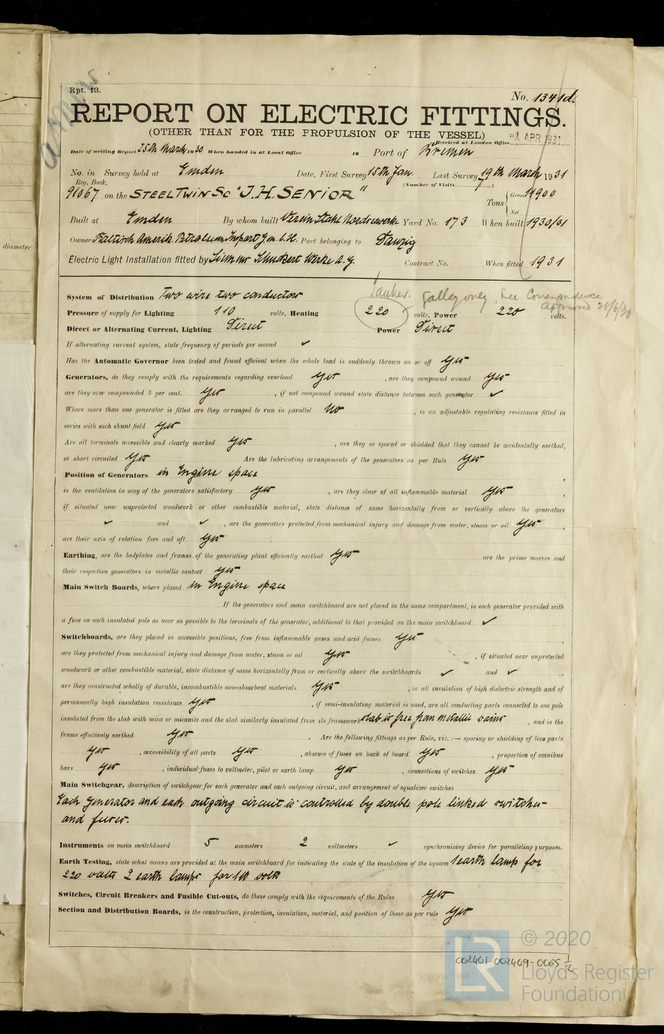 Rpt. 13.
No. 1341d.
REPORT ON ELECTRIC FITTINGS.
(OTHER THAN FOR THE PROPULSION OF THE VESSEL)
Received at London Office APR 1931
Date of writing Report 25th March 1930 When handed in at Local Office 19 Port of Bremen
No. in Survey held at Emden Date, First Survey 15th Jan. Last Survey 19th March 1931
Reg. Book. (Number of Visits 7)
91067 on the STEEL TWIN SC "J.H. SENIOR" Tons Gross 11900
Net
Built at Emden By whom built Yard No. 173 When built 1930/31
Owners Port belonging to Danzig
Electric Light Installation fitted by Contract No. When fitted 1931
System of Distribution Two wire two conductor
Tanker. galley only See Correspondence
Pressure of supply for Lighting 110 volts, Heating 220 volts, Power 220 volts.
Direct or Alternating Current, Lighting Direct Power Direct
If alternating current system, state frequency of periods per second ✓
Has the Automatic Governor been tested and found efficient when the whole load is suddenly thrown on or off yes
Generators, do they comply with the requirements regarding overload yes , are they compound wound yes
are they over compounded 5 per cent. yes , if not compound wound state distance between each generator ✓
Where more than one generator is fitted are they arranged to run in parallel No , is an adjustable regulating resistance fitted in
series with each shunt field yes
Are all terminals accessible and clearly marked yes , are they so spaced or shielded that they cannot be accidentally earthed,
or short circuited yes Are the lubricating arrangements of the generators as per Rule yes
Position of Generators in Engine space
is the ventilation in way of the generators satisfactory yes , are they clear of all inflammable material yes
if situated near unprotected woodwork or other combustible material, state distance of same horizontally from or vertically above the generators
✓ and ✓ , are the generators protected from mechanical injury and damage from water, steam or oil yes
are their axis of rotation fore and aft yes
Earthing, are the bedplates and frames of the generating plant efficiently earthed yes are the prime movers and
their respective generators in metallic contact yes
Main Switch Boards, where placed in Engine space
If the generators and main switchboard are not placed in the same compartment, is each generator provided with
a fuse on each insulated pole as near as possible to the terminals of the generator, additional to that provided on the main switchboard ✓
Switchboards, are they placed in accessible positions, free from inflammable gases and acid fumes yes
are they protected from mechanical injury and damage from water, steam or oil yes , if situated near unprotected
woodwork or other combustible material, state distance of same horizontally from or vertically above the switchboards ✓ and ✓
are they constructed wholly of durable, incombustible non-absorbent materials yes , is all insulation of high dielectric strength and of
permanently high insulation resistance yes , if semi-insulating material is used, are all conducting parts connected to one pole
insulated from the slab with mica or micanite and the slab similarly insulated from its framework slab is free from metallic veins , and is the
frame effectively earthed yes . Are the following fittings as per Rule, viz.:— spacing or shielding of live parts
yes , accessibility of all parts yes , absence of fuses on back of board yes , proportion of omnibus
bars yes , individual fuses to voltmeter, pilot or earth lamp yes , connections of switches yes
Main Switchgear, description of switchgear for each generator and each outgoing circuit, and arrangement of equalizer switches
Each generator and each outgoing circuit is controlled by double pole linked switches
and fuses.
Instruments on main switchboard 5 ammeters 2 voltmeters ✓ synchronising device for paralleling purposes.
Earth Testing, state what means are provided at the main switchboard for indicating the state of the insulation of the system 1 earth lamp for
220 volts 2 earth lamps for 110 volts
Switches, Circuit Breakers and Fusible Cut-outs, do these comply with the requirements of the Rules yes
Section and Distribution Boards, is the construction, protection, insulation, material, and position of these as per rule yes
© 2020
Lloyd's Register
Foundation
002401-002409-0065 1/2
diameter